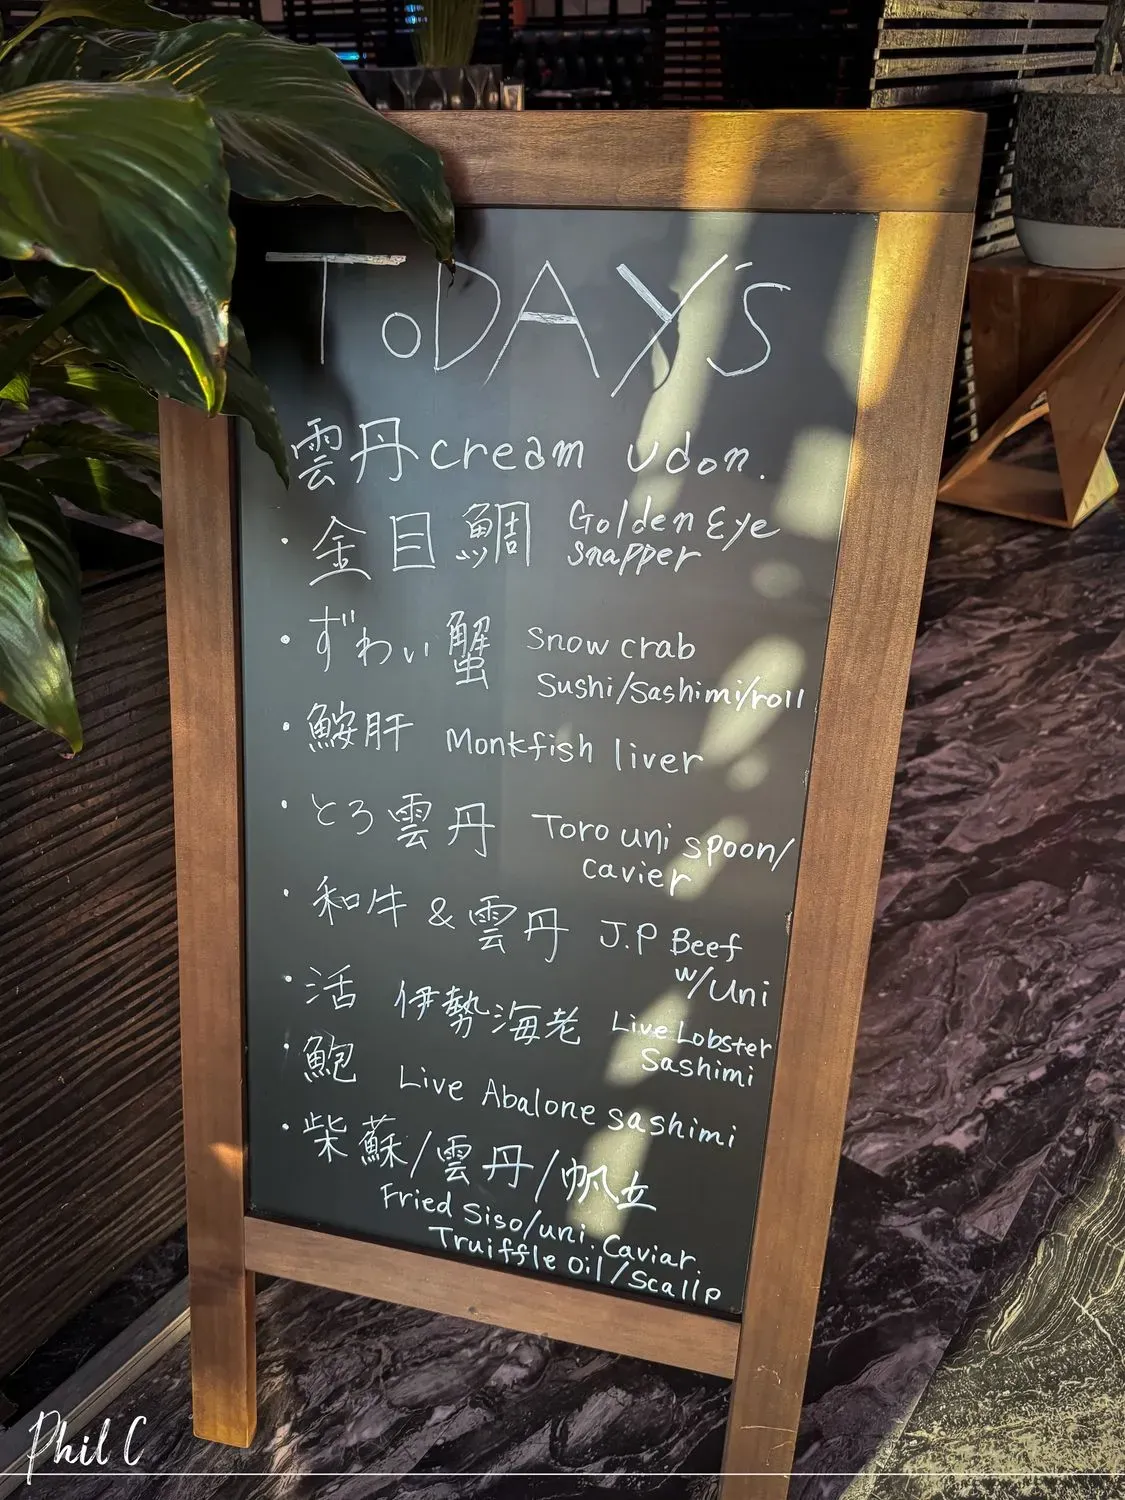 ToDAY's
雲丹cream udon.
・金目鯛 Golden Eye
snapper
・ずわい蟹 Snow crab
Sushi/Sashimi/roll
・鮟肝 Monkfish liver
・とろ雲丹 Toro uni spoon/
cavier
・和牛 & 雲丹 J.P Beef
w/Uni
・活 伊勢海老 Live Lobster
Sashimi
・鮑 Live Abalone sashimi
・柴蘇/雲丹/帆立
Fried Siso/uni. Caviar.
Truiffle oil/Scallp
Phil C